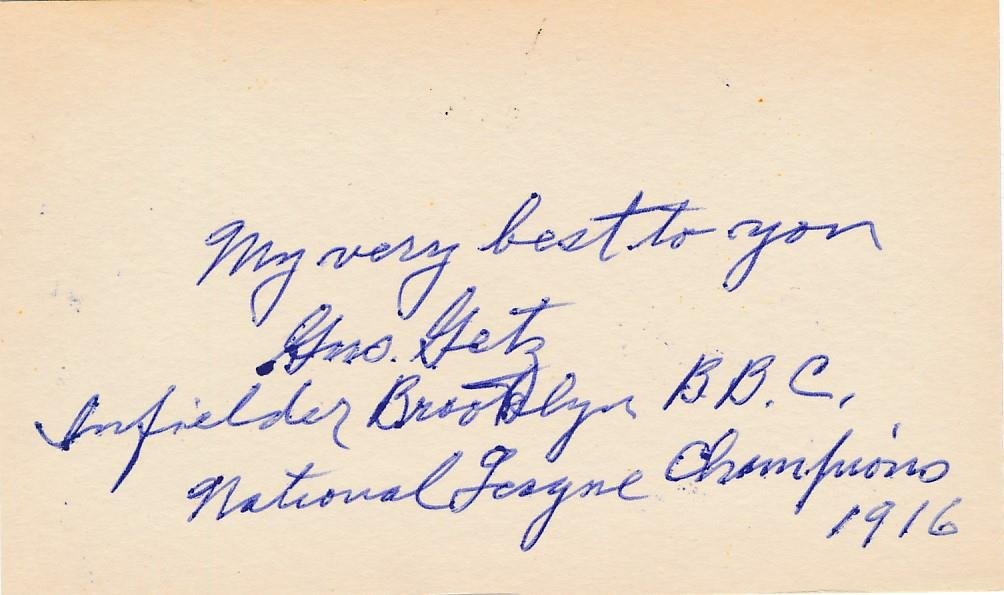 My very best to you
Gus. Getz
Infielder Brooklyn B.B.C.
National League Champions
1916